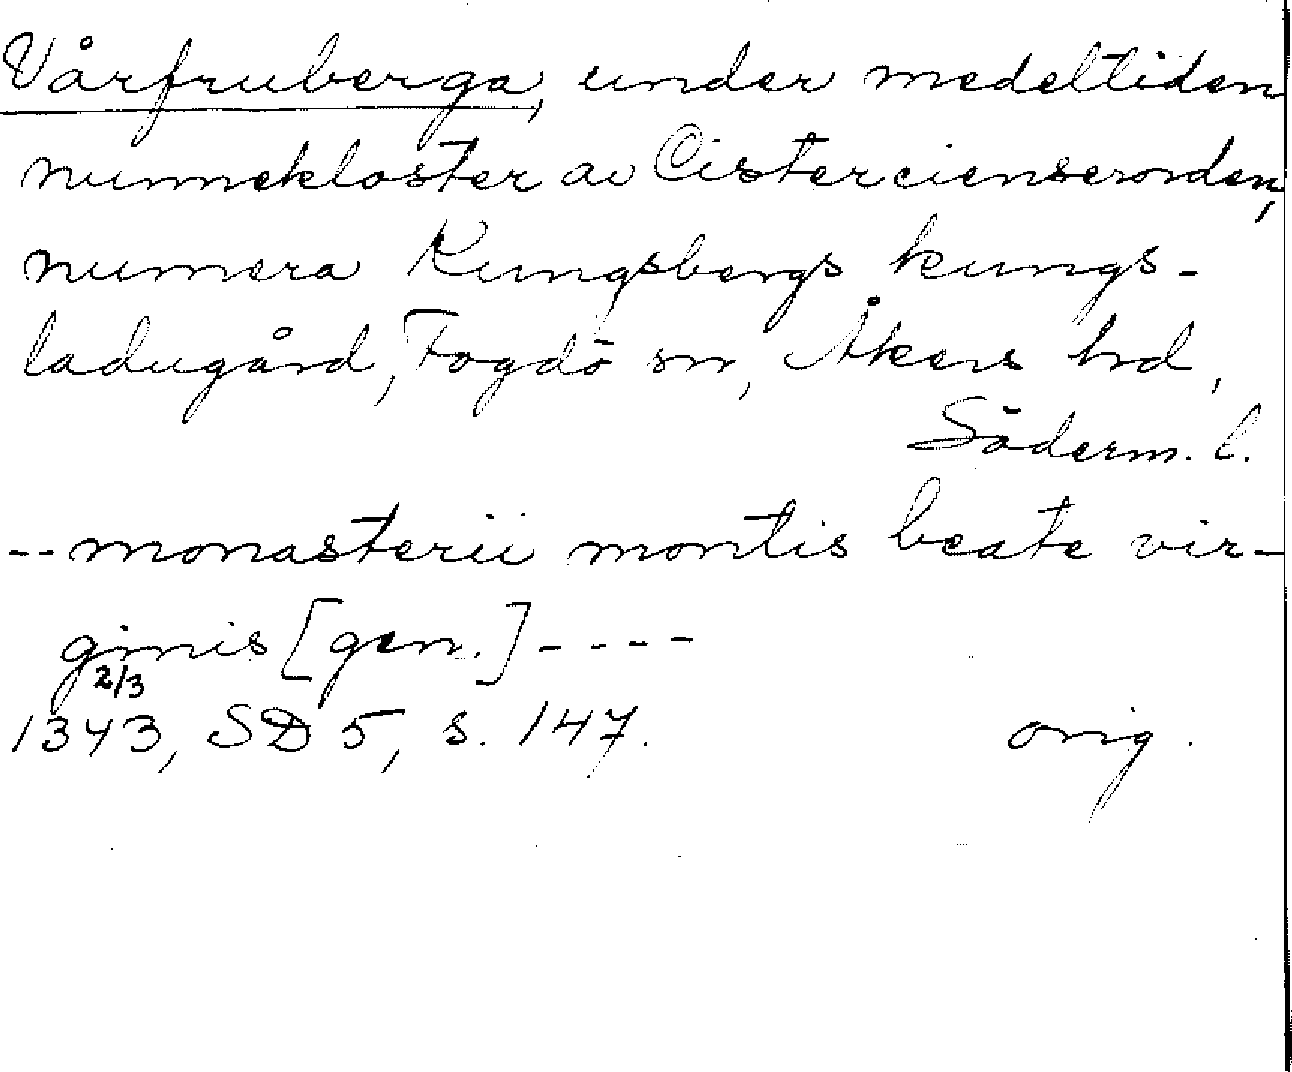 Vårfruberga, under medeltiden
nunnekloster av Cistercienserorden,
numera Kungsbergs kungs-
ladugård, Fogdö sn, Åkers hd,
Söderm. l.
-- monasterii montis beate vir-
ginis [gen.] ----
2/3
1343, SD 5, s. 147. orig.